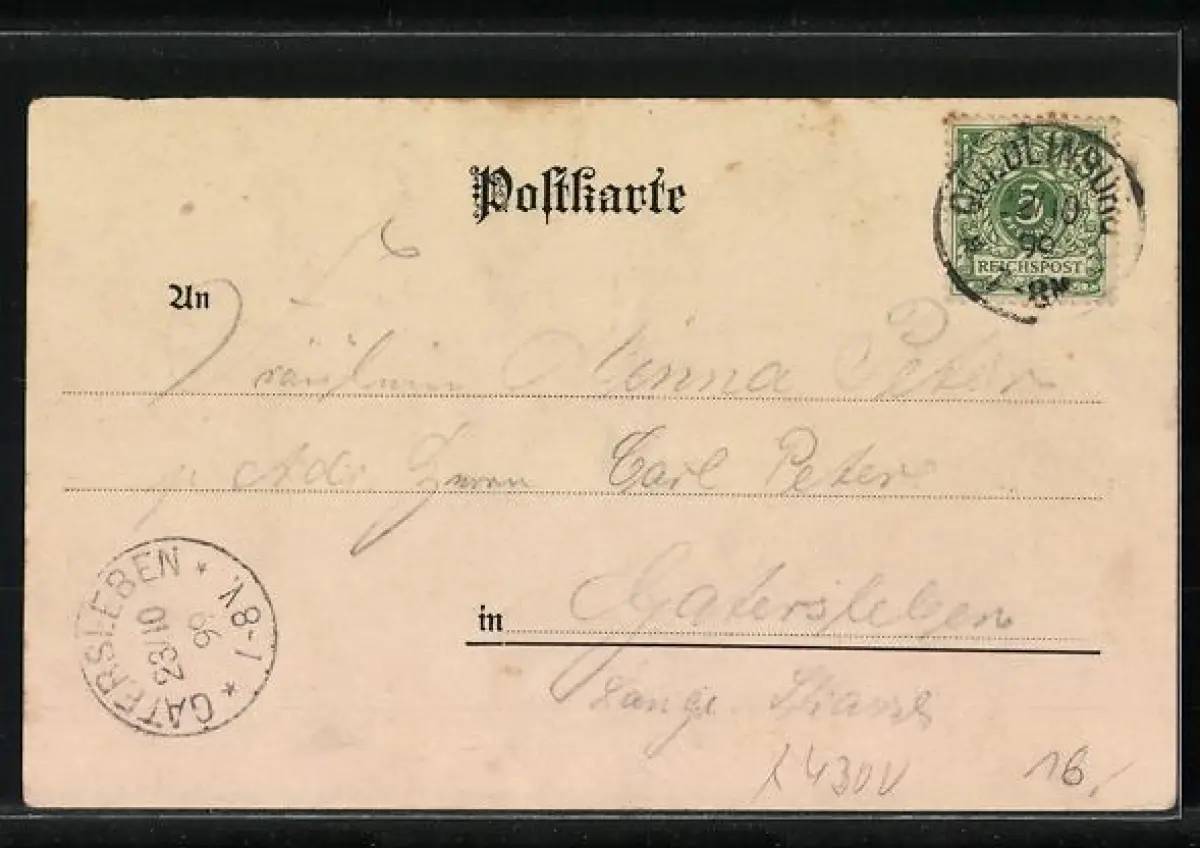 Postkarte
QUEDLINBURG
10
98
-8N
5
REICHSPOST
An
Fräulein Minna Peter
Adr Herrn Carl Peter
in Gatersleben
Lange Strasse
GATERSLEBEN
23/10
98
* 8-1 V. *
16